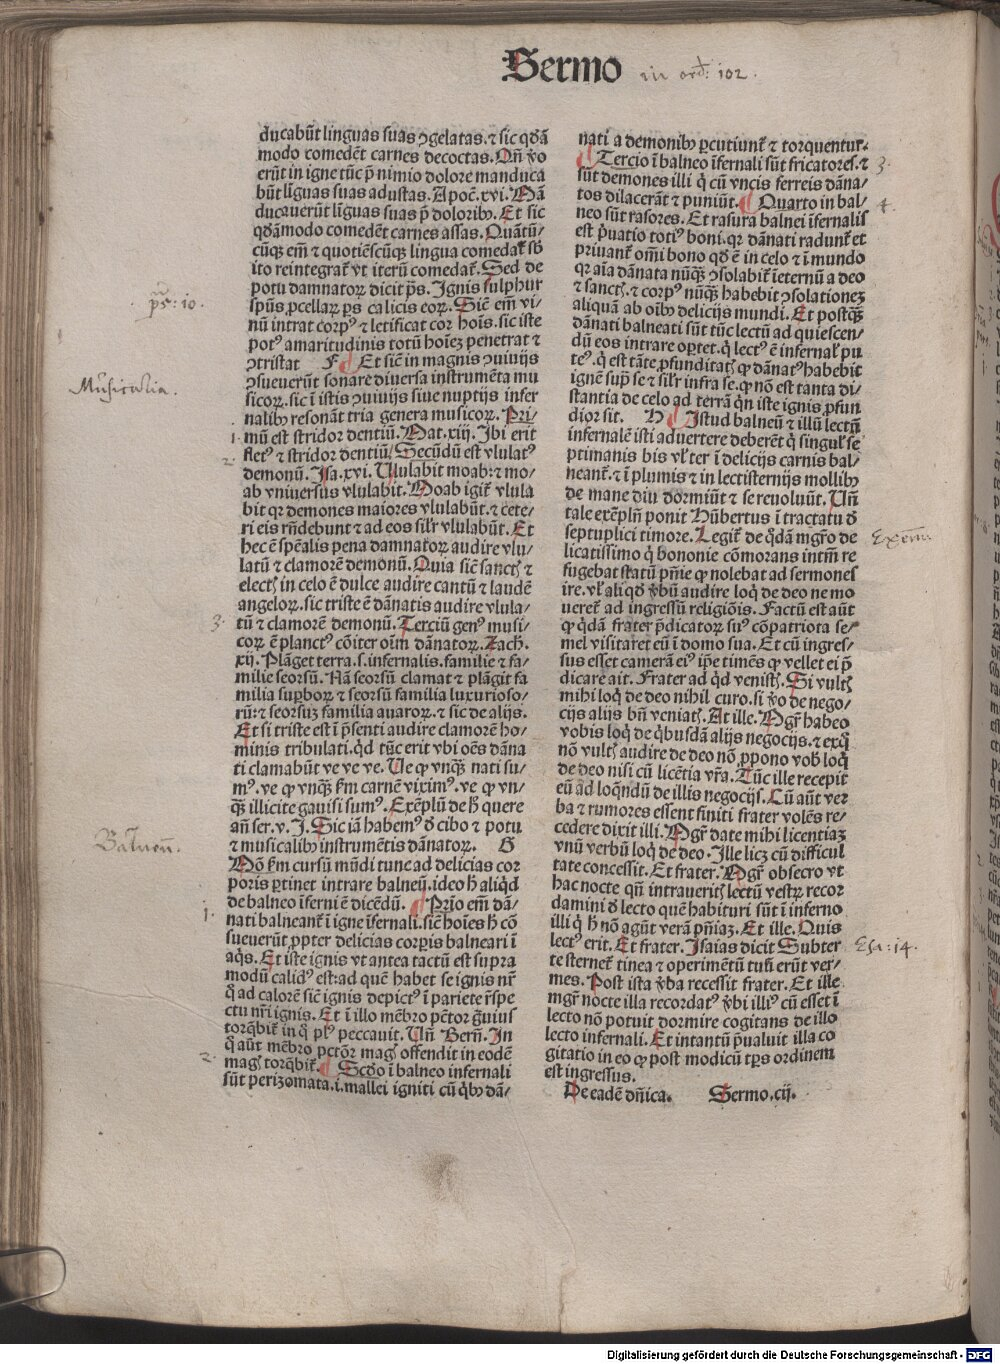 Sermo in ord: 102.
ducabūt linguas suas ꝯgelatas. ⁊ sic qđā
modo comedēt carnes decoctas. Qn̄ v̄o
erūt in igne tūc p̄ nimio dolore manduca
būt līguas suas adustas. Apoc̄. xvi. Mā
ducauerūt līguas suas p̄ doloribꝰ. Et sic
qđāmodo comedēt carnes assas. Quātū/
cūqꝫ em̄ ⁊ quotiēscūqꝫ lingua comedat̄ sƀ
ito reintegrat̄ vt iterū comedat̄. Sed de
potu damnatoꝝ dicit ps̄. Ignis sulphur
ps: 10.
spūs ꝓcellaꝝ ps calicis eoꝝ. Sic̄ em̄ vi/
nū intrat corpꝰ ⁊ letificat cor hoīs. sic iste
potꝰ amaritudinis totū hoīeꝫ penetrat ⁊
ꝯtristat F Et sic̄ in magnis ꝯuiuijs
Musicalia.
ꝯsueuerūt sonare diuersa instrumēta mu
sicoꝝ. sic ī istis ꝯuiuijs siue nuptijs infer
nalibꝰ resonāt tria genera musicoꝝ. Pri/
1. mū est stridor dentiū. Mat. xiij. Ibi erit
2. fletꝰ ⁊ stridor dentiū. Secūdū est vlulatꝰ
demonū. Isa. xvi. Ululabit moab: ⁊ mo/
ab vniuersus vlulabit. Moab igit̄ vlula
bit qꝛ demones maiores vlulabūt. ⁊ cete/
ri eis rn̄debunt ⁊ ad eos sil'r vlulabūt. Et
hec ē sp̄ealis pena damnatoꝝ audire vlu/
latū ⁊ clamorē demonū. Quia sic̄ sanctꝭ ⁊
electꝭ in celo ē dulce audire cantū ⁊ laudē
angeloꝝ. sic triste ē dānatis audire vlula/
3. tū ⁊ clamorē demonū. Terciū genꝰ musi/
coꝝ ē planctꝰ cōiter oīm dānatoꝝ. Zach̄.
xij. Plāget terra. s. infernalis. familie ⁊ fa/
milie seorsū. Nā seorsū clamat ⁊ plāgit fa
milia suꝑboꝝ ⁊ seorsū familia luxurioso/
rū: ⁊ seorsuꝫ familia auaroꝝ. ⁊ sic de alijs.
Et si triste est ī p̄senti audire clamorē ho/
minis tribulati. qđ tūc erit vbi oēs dāna
ti clamabūt ve ve ve. Ue ꝙ vnqꝫ nati su/
mꝰ. ve ꝙ vnqꝫ ẜm carnē viximꝰ. ve ꝙ vn/
qꝫ illicite gauisi sumꝰ. Exēplū de h̄ quere
an̄ ser. v. I. Sic iā habemꝰ đ cibo ⁊ potu
Balneū.
⁊ musicalibꝰ instrumētis dānatoꝝ. G
Nō ẜm cursū mūdi tunc ad delicias cor
poris ꝑtinet intrare balneū. ideo h̄ aliqđ
de balneo īferni ē dicēdū. Primo em̄ dā/
1. nati balneant̄ ī igne īfernali. sic̄ hoīes h̄ cō
sueuerūt ꝓpter delicias corꝑis balneari ī
aq̄s. Et iste ignis vt antea tactū est supra
modū calidꝰ est: ad quē habet se ignis nr̄
q̄ ad calorē sic̄ ignis depictꝰ ī pariete r̄spe
ctu nr̄i ignis. Et ī illo mēbro pc̄tor g̊uius
torq̄bit̄ in q̊ plꝰ peccauit. Un̄ Bern̄. In
q̊ aūt mēbro pctōr magꝭ offendit in eodē
2. magꝭ torq̄bit̄. Scđo ī balneo infernali
sūt perizomata. i. mallei igniti cū qbꝰ dā/
nati a demonibꝰ ꝑcutiunt̄ ⁊ torquentur.
Tercio ī balneo īfernali sūt fricatores. ⁊ 3.
sūt demones illi q̄ cū vncis ferreis dāna/
tos dilacerāt ⁊ puniūt. Quarto in bal/ 4.
neo sūt rasores. Et rasura balnei īfernalis
est p̄uatio totiꝰ boni. qꝛ dānati radunt̄ et
priuant̄ om̄i bono qđ ē in celo ⁊ ī mundo
qꝛ aīa dānata nūq̄ꝫ ꝯsolabit̄ īeternū a deo
⁊ sanctꝭ. ⁊ corpꝰ nūq̄ꝫ habebit ꝯsolationeꝫ
aliquā ab oībꝰ delicijs mundi. Et postq̄ꝫ
dānati balneati sūt tūc lectū ad quiescen/
dū eos intrare oꝑtet. q̄ lectꝰ ē īfernal̄ pu
teꝰ. q̄ est tāte ꝓfunditatꝭ ꝙ dānatꝰ habebit
ignē sup̄ se ⁊ sil'r infra se. ꝙ nō est tanta di/
stantia de celo ad terrā q̄n iste ignis ꝓfun
dior sit. H Istud balneū ⁊ illū lectū
infernalē isti aduertere deberēt q̄ singul̄ se
ptimanis bis vl̄ ter ī delicijs carnis bal/
neant̄. ⁊ ī plumis ⁊ in lectisternijs mollibꝰ
de mane diu dormiūt ⁊ se reuoluūt. Un̄
tale exēplū ponit Hūbertus ī tractatu đ
septuplici timore. Legit̄ de q̊dā mgr̄o de Exem.
licatissimo q̄ bononie cōmorans intm̄ re
fugebat statū pn̄ie ꝙ nolebat ad sermones
ire. vl̄ aliqđ v̄bū audire loq̄ de deo ne mo
ueret̄ ad ingressū religiōis. Factū est aūt
ꝙ q̊dā frater p̄dicatoꝝ suꝰ cōpatriota se/
mel visitaret eū ī domo sua. Et cū ingres/
sus esset camerā eiꝰ ip̄e timēs ꝙ vellet ei p̄
dicare ait. Frater ad qđ venistꝭ. Si vultꝭ
mihi loq̄ de deo nihil curo. si v̄o de nego/
cijs alijs bn̄ veniatꝭ. At ille. Mgr̄ habeo
vobis loq̄ de q̄busdā alijs negocijs. ⁊ exq̊
nō vultꝭ audire de deo nō ꝓpono vob̄ loq̄
de deo nisi cū licētia vr̄a. Tūc ille recepit
eū ad loq̄ndū de illis negocijs. Cū aūt ver
ba ⁊ rumores essent finiti frater volēs re/
cedere dixit illi. Mgr̄ date mihi licentiaꝫ
vnū verbū loq̄ de deo. Ille licꝫ cū difficul
tate concessit. Et frater. Mgr̄ obsecro vt
hac nocte qn̄ intraueritꝭ lectū vestꝝ recor
damini đ lecto quē habituri sūt ī inferno
illi q̄ h̄ nō agūt verā pn̄iaꝫ. Et ille. Quis
lectꝰ erit. Et frater. Isaias dicit Subter Esa: 14.
te sternet̄ tinea ⁊ operimētū tuū erūt ver/
mes. Post ista v̄ba recessit frater. Et ille
mgr̄ nocte illa recordatꝰ v̄bi illiꝰ cū esset ī
lecto nō potuit dormire cogitans de illo
lecto infernali. Et intantū p̄ualuit illa co
gitatio in eo ꝙ post modicū tꝑs ordinem
est ingressus.
De eadē dn̄ica. Sermo. cij.
Digitalisierung gefördert durch die Deutsche Forschungsgemeinschaft - DFG